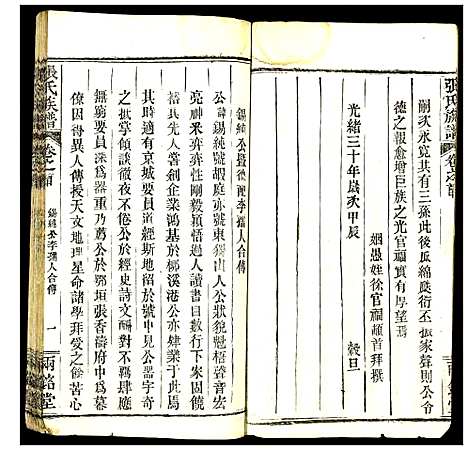 張氏族譜
卷之首
嗣次永寬共有三孫此後瓜綿蔟衍丕振家聲則公令
德之報愈增巨族之光官禎實有厚望焉
姻愚姪徐官禎頓首拜撰
光緒三十年歲次甲辰 穀旦
錫純公曁德配李孺人合傳
公諱錫純字胡庭亦號東獨山人公狀貌魁梧聲音宏
亮神釆弈弈性剛毅穎悟過人讀書目數行下家固饒
裕其先人嘗創企業鴻基於柳溪港公亦肄業于此焉
其時適有京城要員道經斯地留於號中見公器宇奇
之抵掌傾談徹夜不倦公於經史詩文酬對不羈肆應
不窮要員深為器重乃薦公於鄂垣張香濤府中為幕
僚因得異人傳授天文地理星命諸學非受之餘苦心
張氏族譜
卷之首
錫純公李孺人合傳
一
兩銘堂